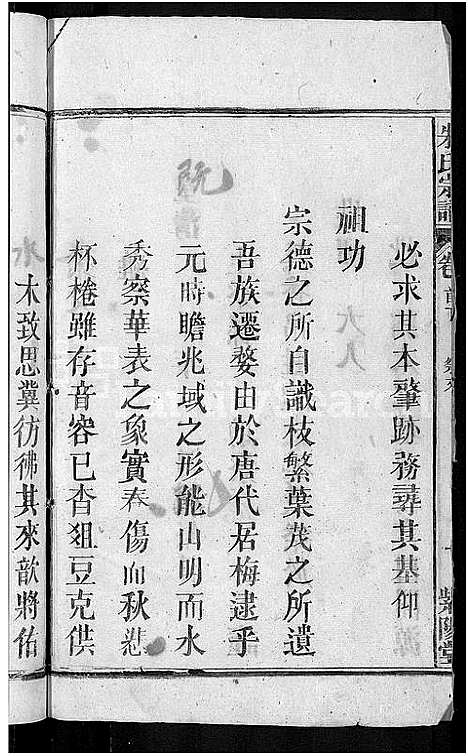 朱氏宗譜
卷首
紫陽堂
必求其本肇跡務尋其基仰
祖功
宗德之所自識枝繁葉茂之所遺
吾族遷婺由於唐代居梅逮乎
元時瞻兆域之形能山明而水
秀察華表之象實春傷而秋悲
杯棬雖存音容已杳俎豆克供
水木致思冀彷彿其來歆將佑